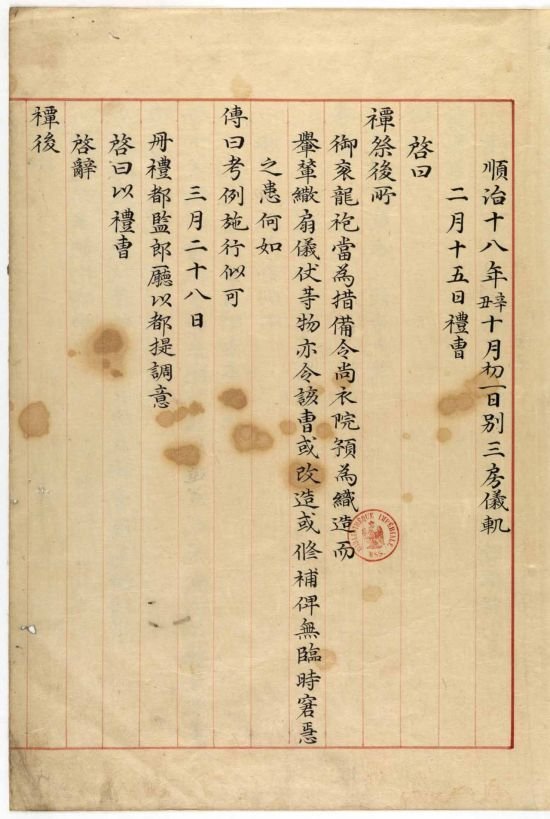 順治十八年辛丑十月初一日別三房儀軌
二月十五日禮曹
啓曰
禫祭後所
御衮龍袍當為措備令尚衣院預為織造而
輦轝繖扇儀仗等物亦令該曹或改造或修補俾無臨時窘急
之患何如
傳曰考例施行似可
三月二十八日
冊禮都監郎廳以都提調意
啓曰以禮曹
啓辭
禫後
BIBLIOTHÈQUE IMPÉRIALE MSS